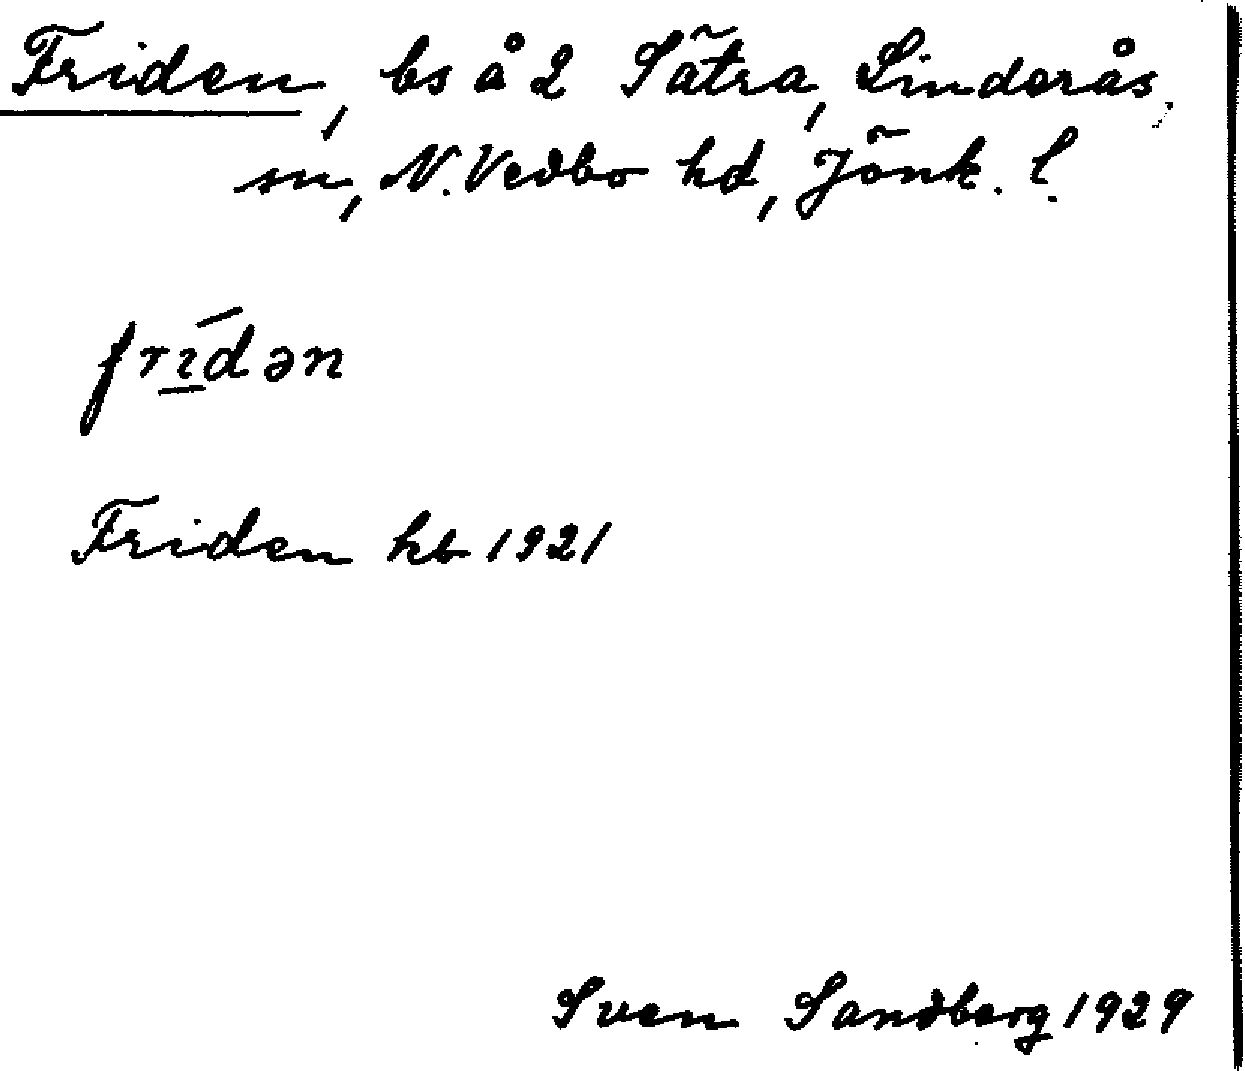 Friden, bs å 2 Sätra, Linderås
sn, N. Vedbo hd, Jönk. l.
frı̱́dən
Friden hb 1921
Sven Sandberg 1929